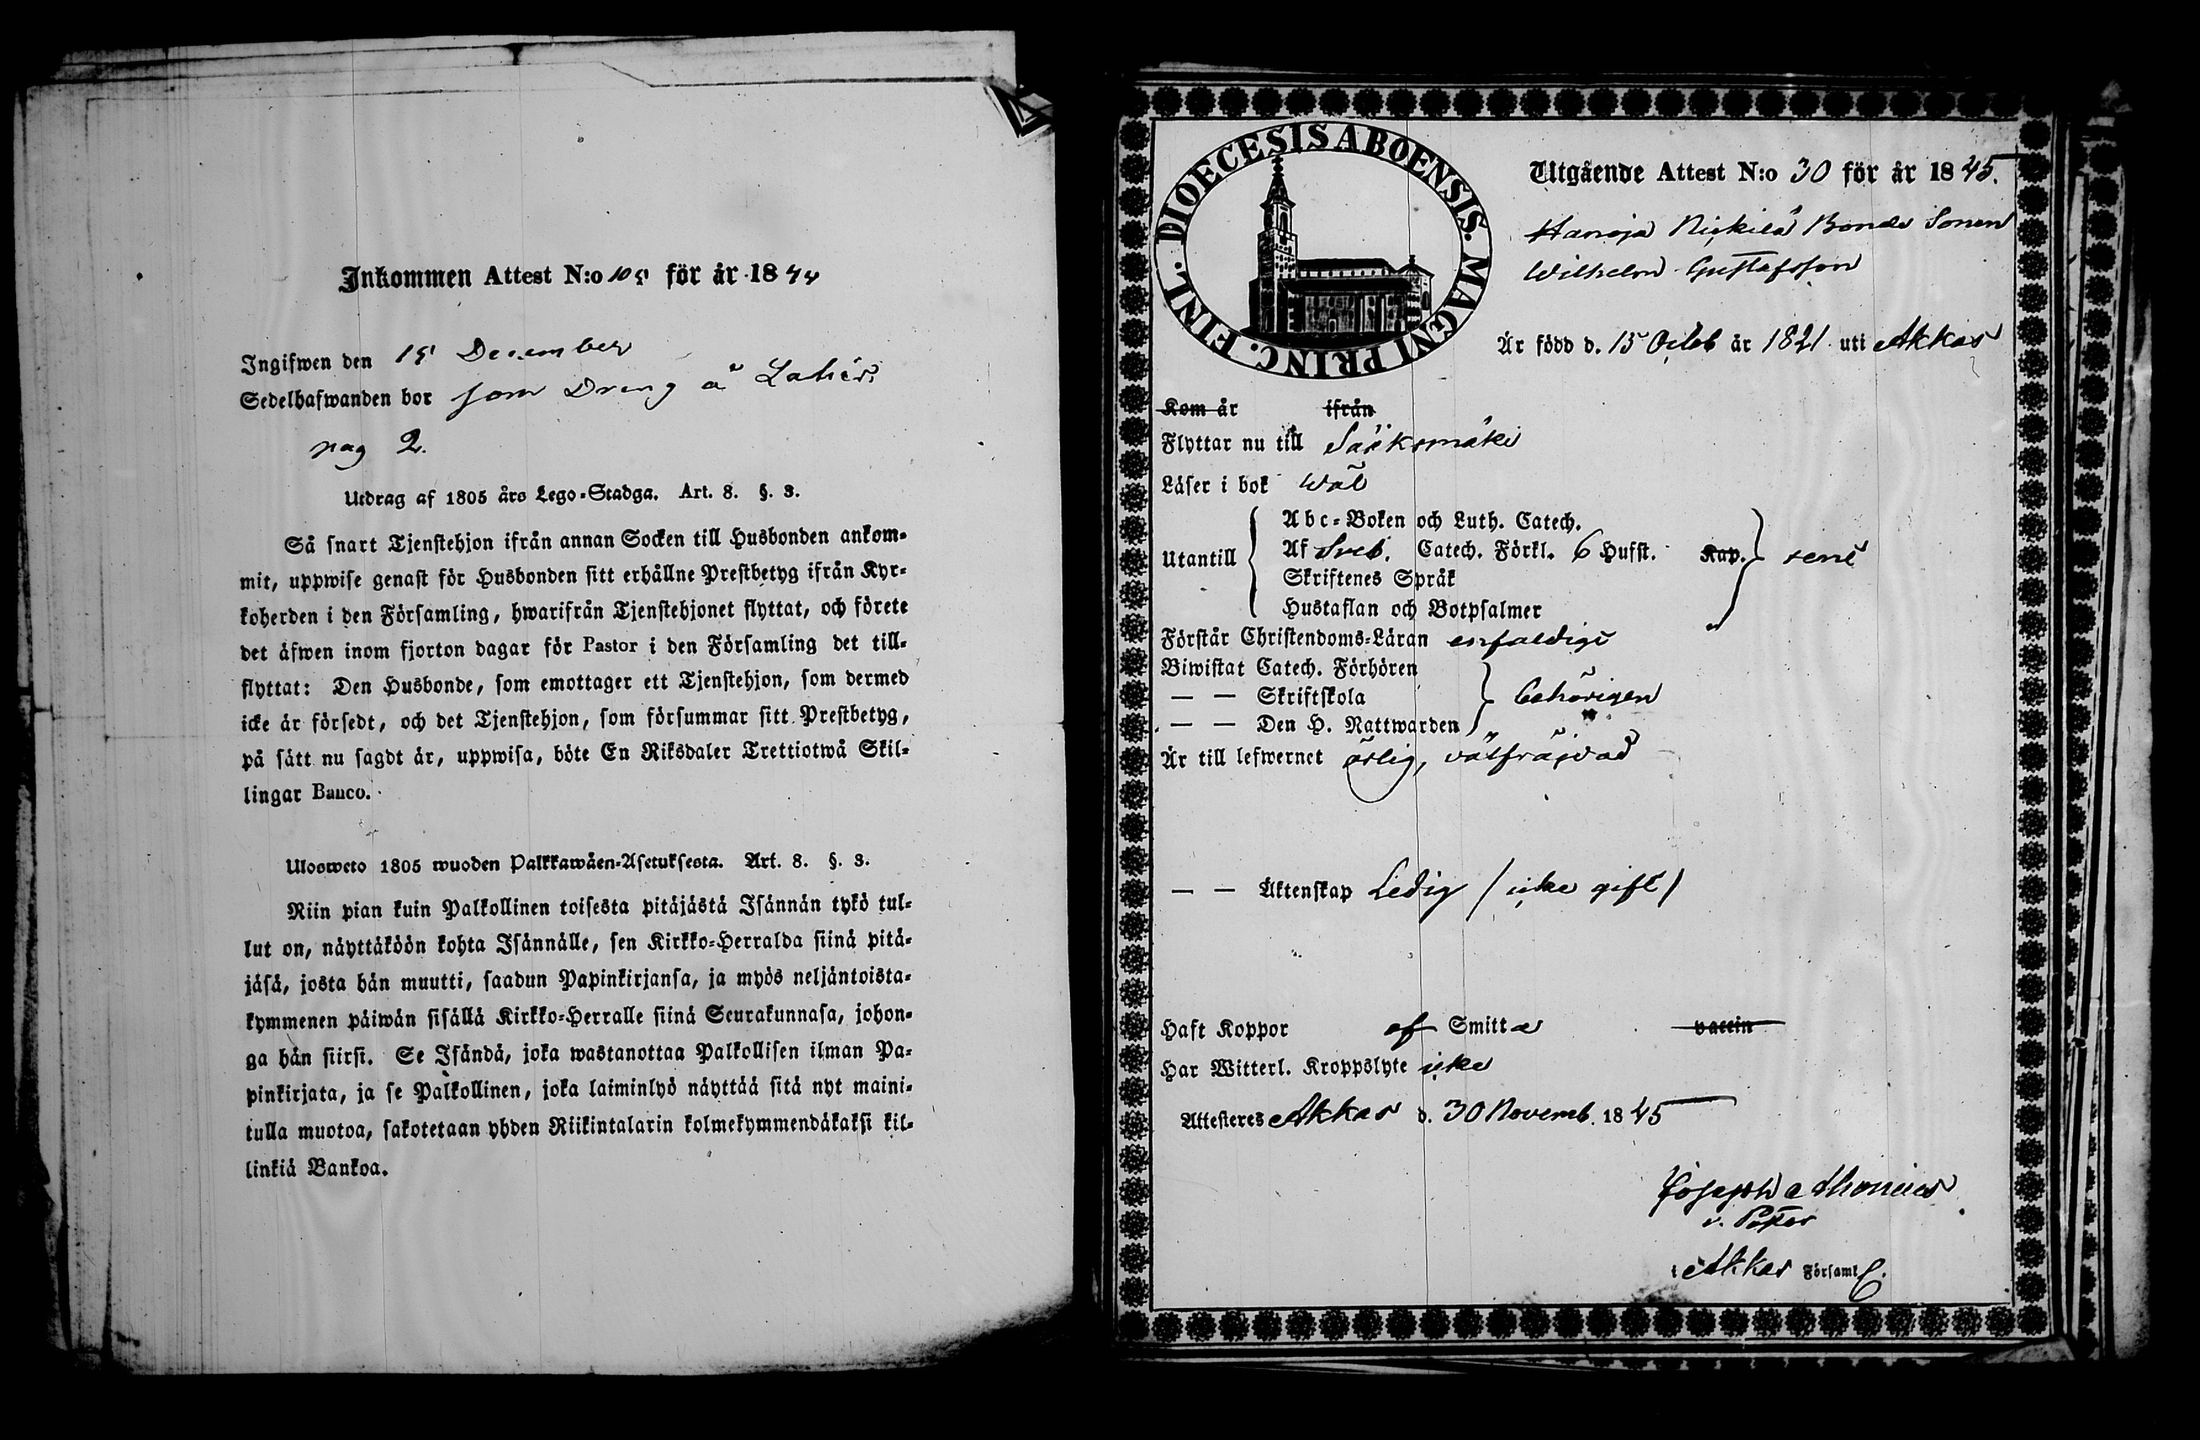 Inkommen Attest N:o 105 för år 1844
Ingifwen den 15 December
Sedelhafwanden bor som Dreng å Lahis.
pag 2.
Utdrag af 1805 års Lego-Stadga. Art. 8. §. 3.
Så snart Tjenstehjon ifrån annan Socken till Husbonden ankom-
mit, uppwise genast för Husbonden sitt erhållne Prestbetyg ifrån Kyr-
koherden i den Församling, hwarifrån Tjenstehjonet flyttat, och förete
det äfwen inom fjorton dagar för Pastor i den Församling det till-
flyttat: Den Husbonde, som emottager ett Tjenstehjon, som dermed
icke är försedt, och det Tjenstehjon, som försummar sitt Prestbetyg,
på sätt nu sagdt är, uppwisa, böte En Riksdaler Trettiotwå Skil-
lingar Banco.
Ulosweto 1805 wuoden Palkkawäen-Asetuksesta. Art. 8. §. 3.
Niin pian kuin Palkollinen toisesta pitäjästä Isännän tykö tul-
lut on, näyttäköön kohta Isännälle, sen Kirkko-Herralda siinä pitä-
jäsä, josta hän muutti, saadun Papinkirjansa, ja myös neljäntoista-
kymmenen päiwän sisällä Kirkko-Herralle siinä Seurakunnasa, johon-
ga hän siirsi. Se Isändä, joka wastanottaa Palkollisen ilman Pa-
pinkirjata, ja se Palkollinen, joka laiminlyö näyttää sitä nyt maini-
tulla muotoa, sakotetaan yhden Riikintalarin kolmekymmendäkaksi kil-
linkiä Bankoa.
DIOECESIS ABOENSIS. MAGNI PRINC. FINL.
Utgående Attest N:o 30 för år 1845.
Hanoja Nickilä Bonde Sonen
Wilhelm Gustafsson
Är född d. 15 Octob år 1821 uti Akkas
Kom år ifrån
Flyttar nu till Sääksmäki
Läser i bok wäl
Abc-Boken och Luth. Catech.
Utantill Af Sveb. Catech. Förkl. 6 Hufst. Kap. rent
Skriftenes Språk
Hustaflan och Botpsalmer
Förstår Christendoms-Läran enfaldigt
Biwistat Catech. Förhören
— — Skriftskola behörigen
— — Den H. Nattwarden
Är till lefwernet ärlig, välfräjdad
— — Äktenskap Ledig (icke gift)
Haft Koppor af Smitta vaccin
Har Witterl. Kroppslyte icke
Attesteres Akkas d. 30 Novemb. 1845
Joseph
v. Pastor
i Akkas Församl.